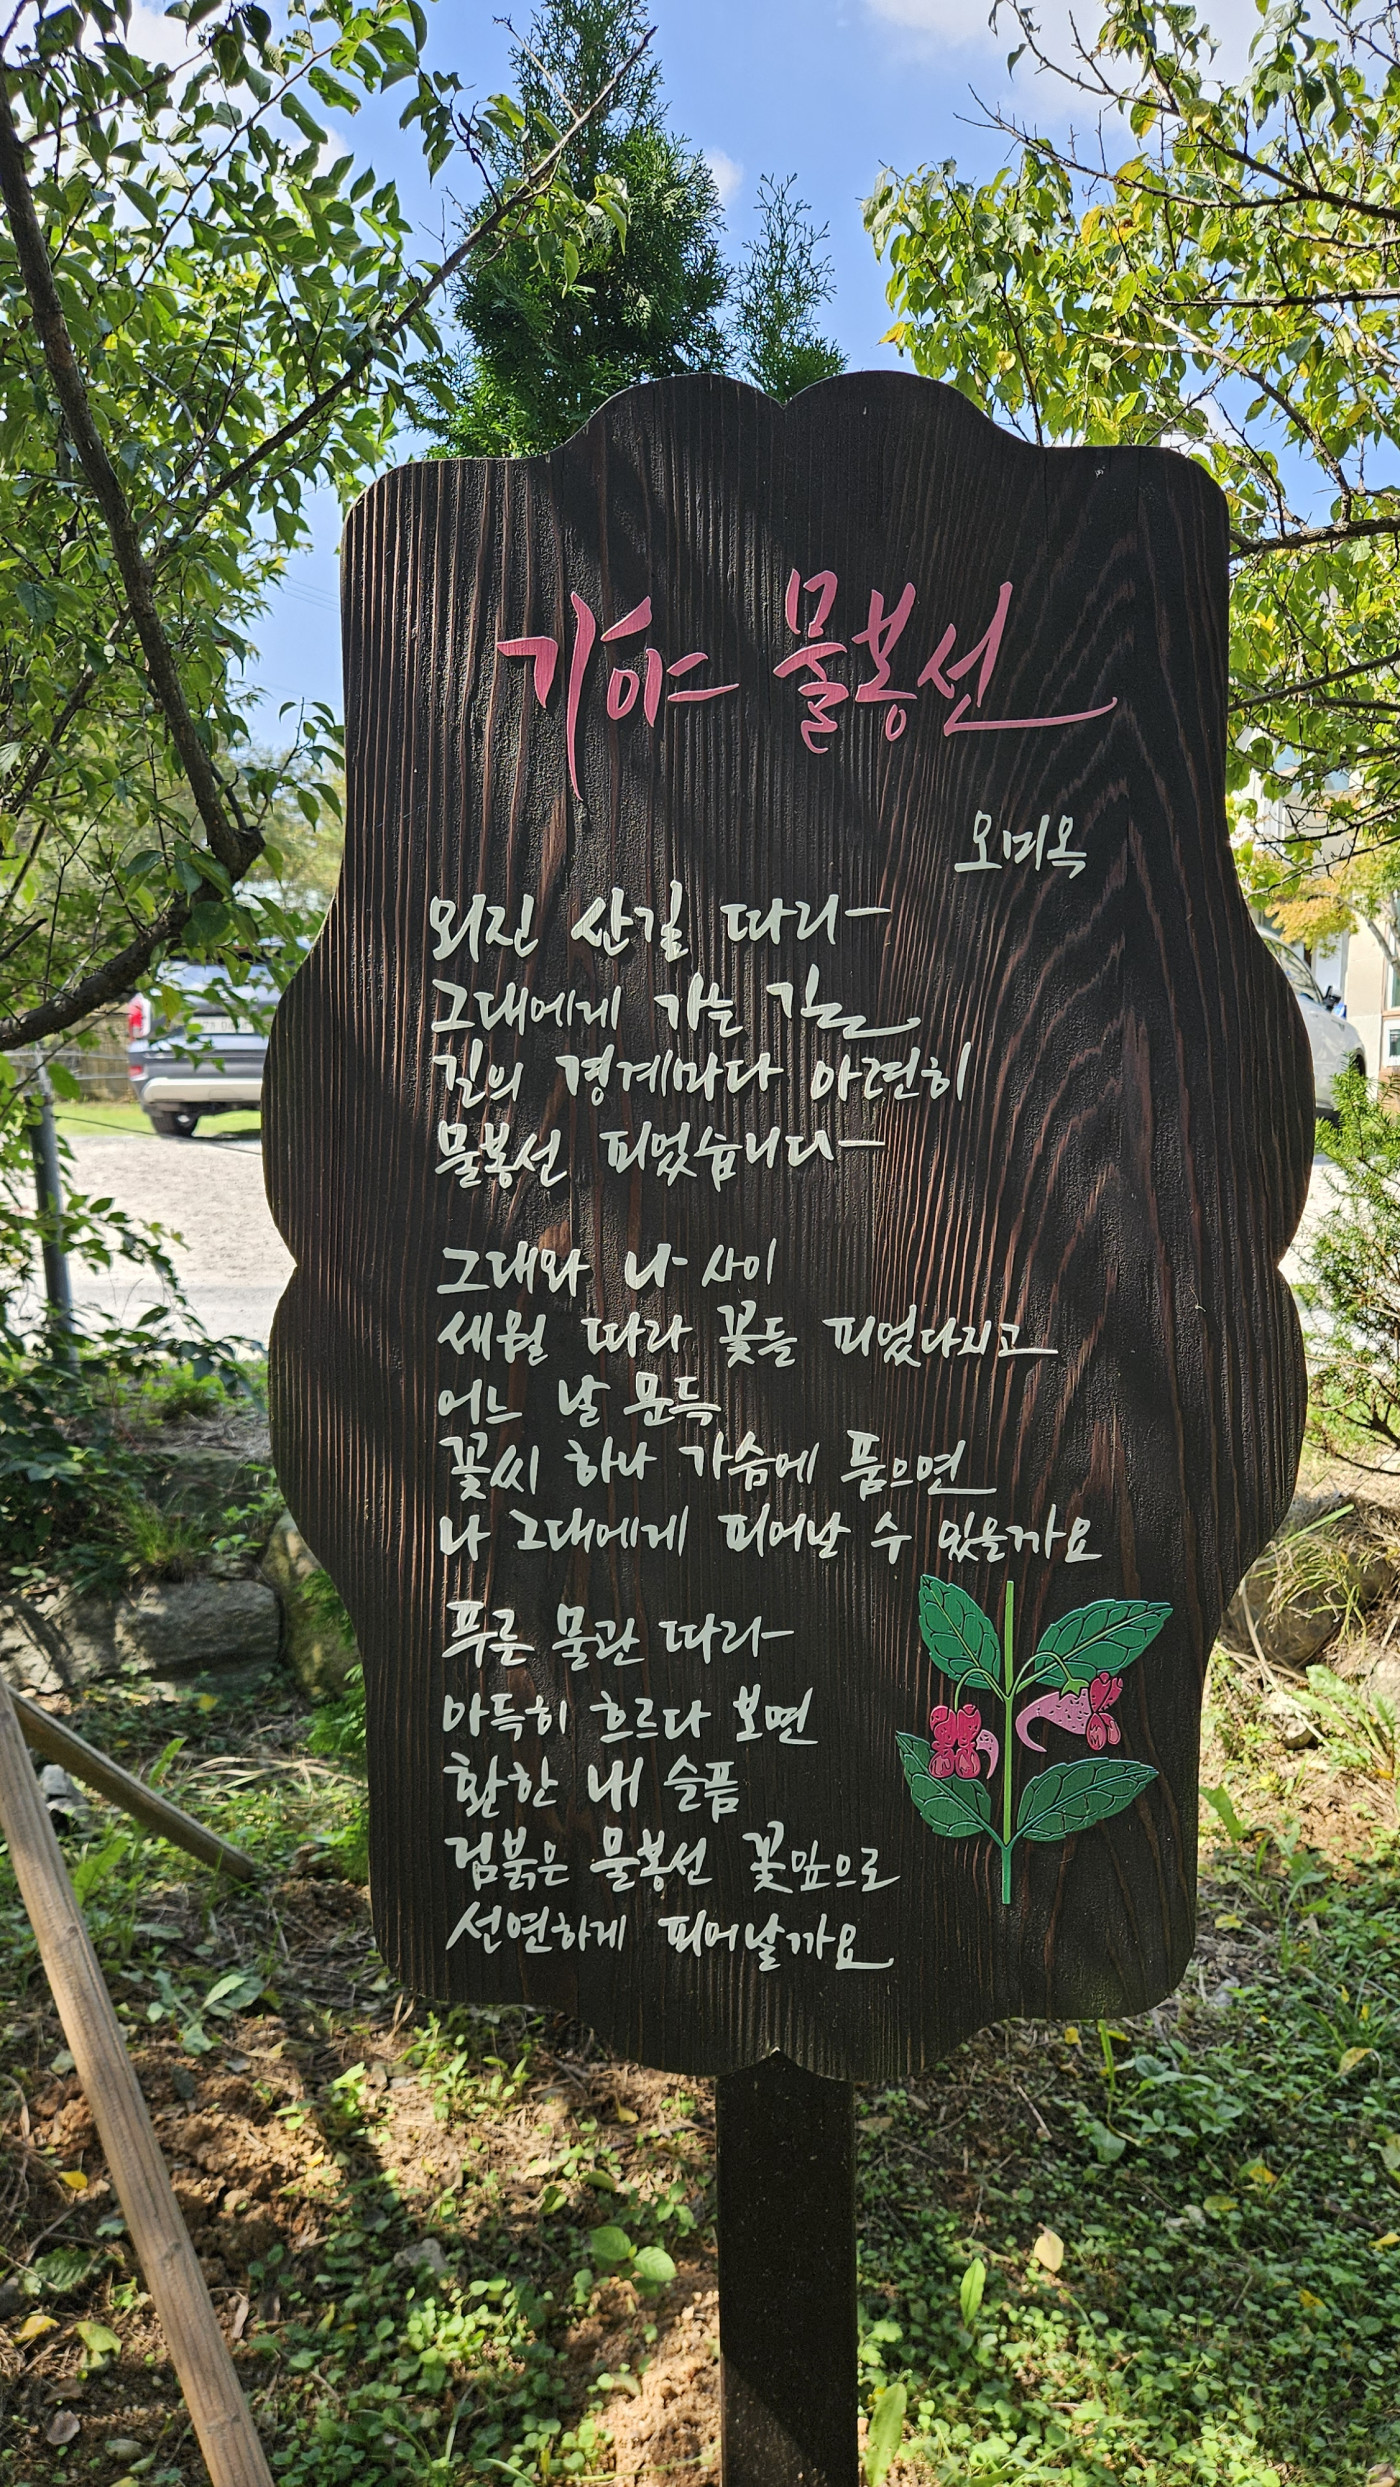 가야 물봉선
오미옥
외진 산길 따라
그대에게 가는 길
길의 경계마다 아련히
물봉선 피었습니다
그대와 나 사이
세월 따라 꽃들 피었다 지고
어느 날 문득
꽃씨 하나 가슴에 품으면
나 그대에게 피어날 수 있을까요
푸른 물관 따라
아득히 흐르다 보면
환한 내 슬픔
검붉은 물봉선 꽃잎으로
선연하게 피어날까요